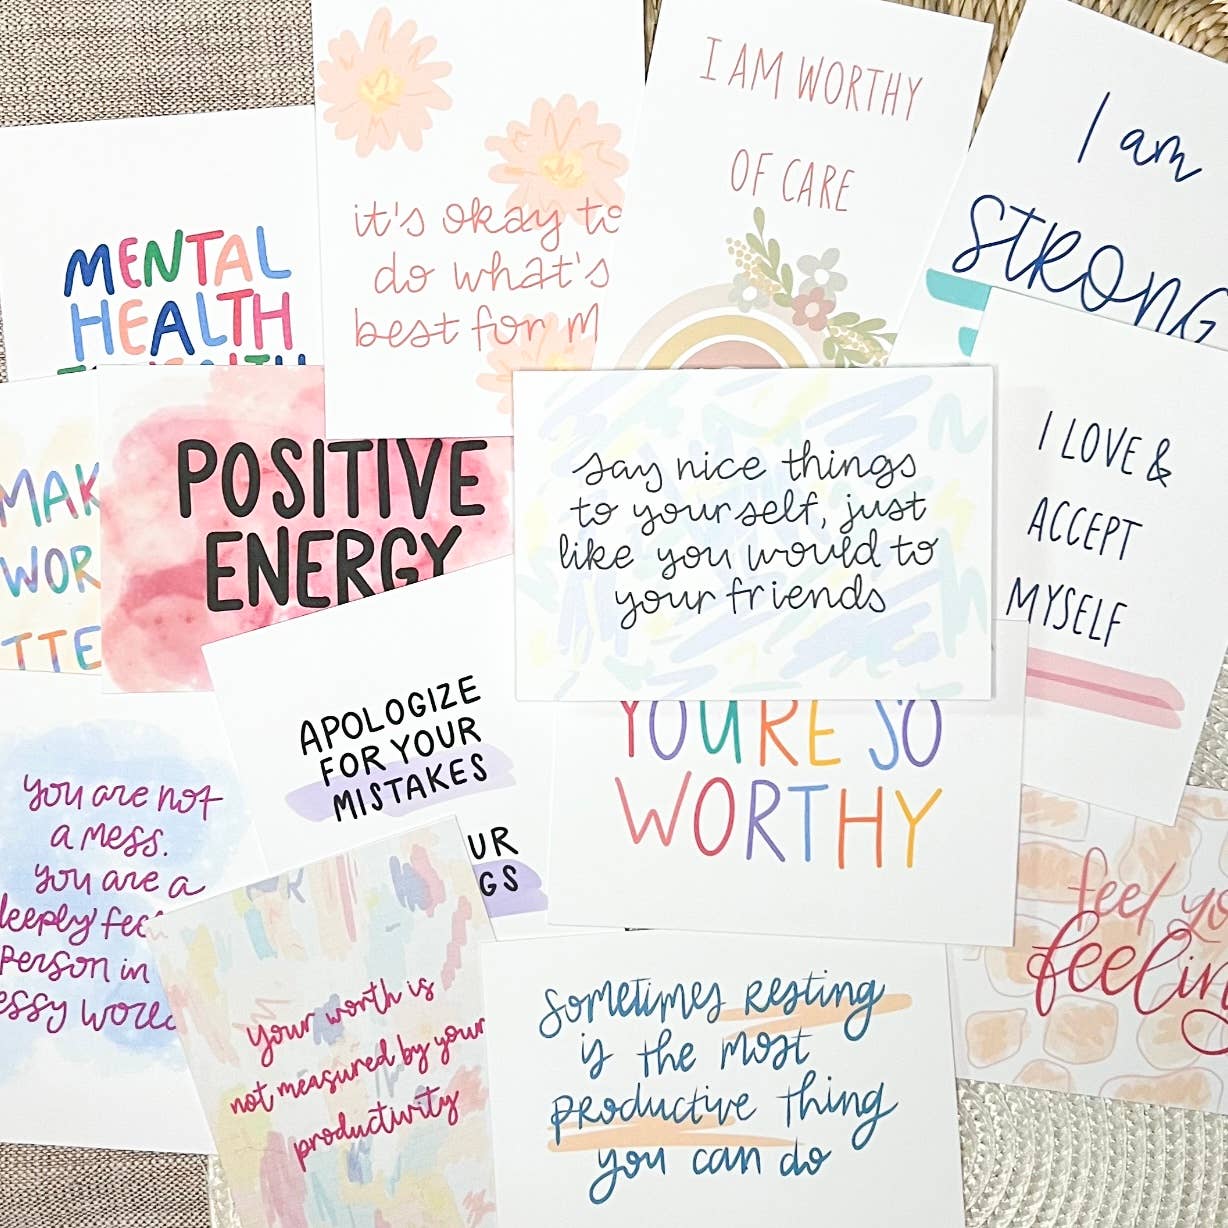 MENTAL
HEALTH
it's okay to
do what's
best for m
I AM WORTHY
OF CARE
I am
STRONG
MAK
WOR
TTE
POSITIVE
ENERGY
say nice things
to yourself, just
like you would to
your friends
I LOVE &
ACCEPT
MYSELF
you are not
a mess.
you are a
deeply fee
person in
essy world
APOLOGIZE
FOR YOUR
MISTAKES
UR
GS
YOU'RE SO
WORTHY
feel yo
feelin
your worth is
not measured by your
productivity
Sometimes resting
is the most
productive thing
you can do